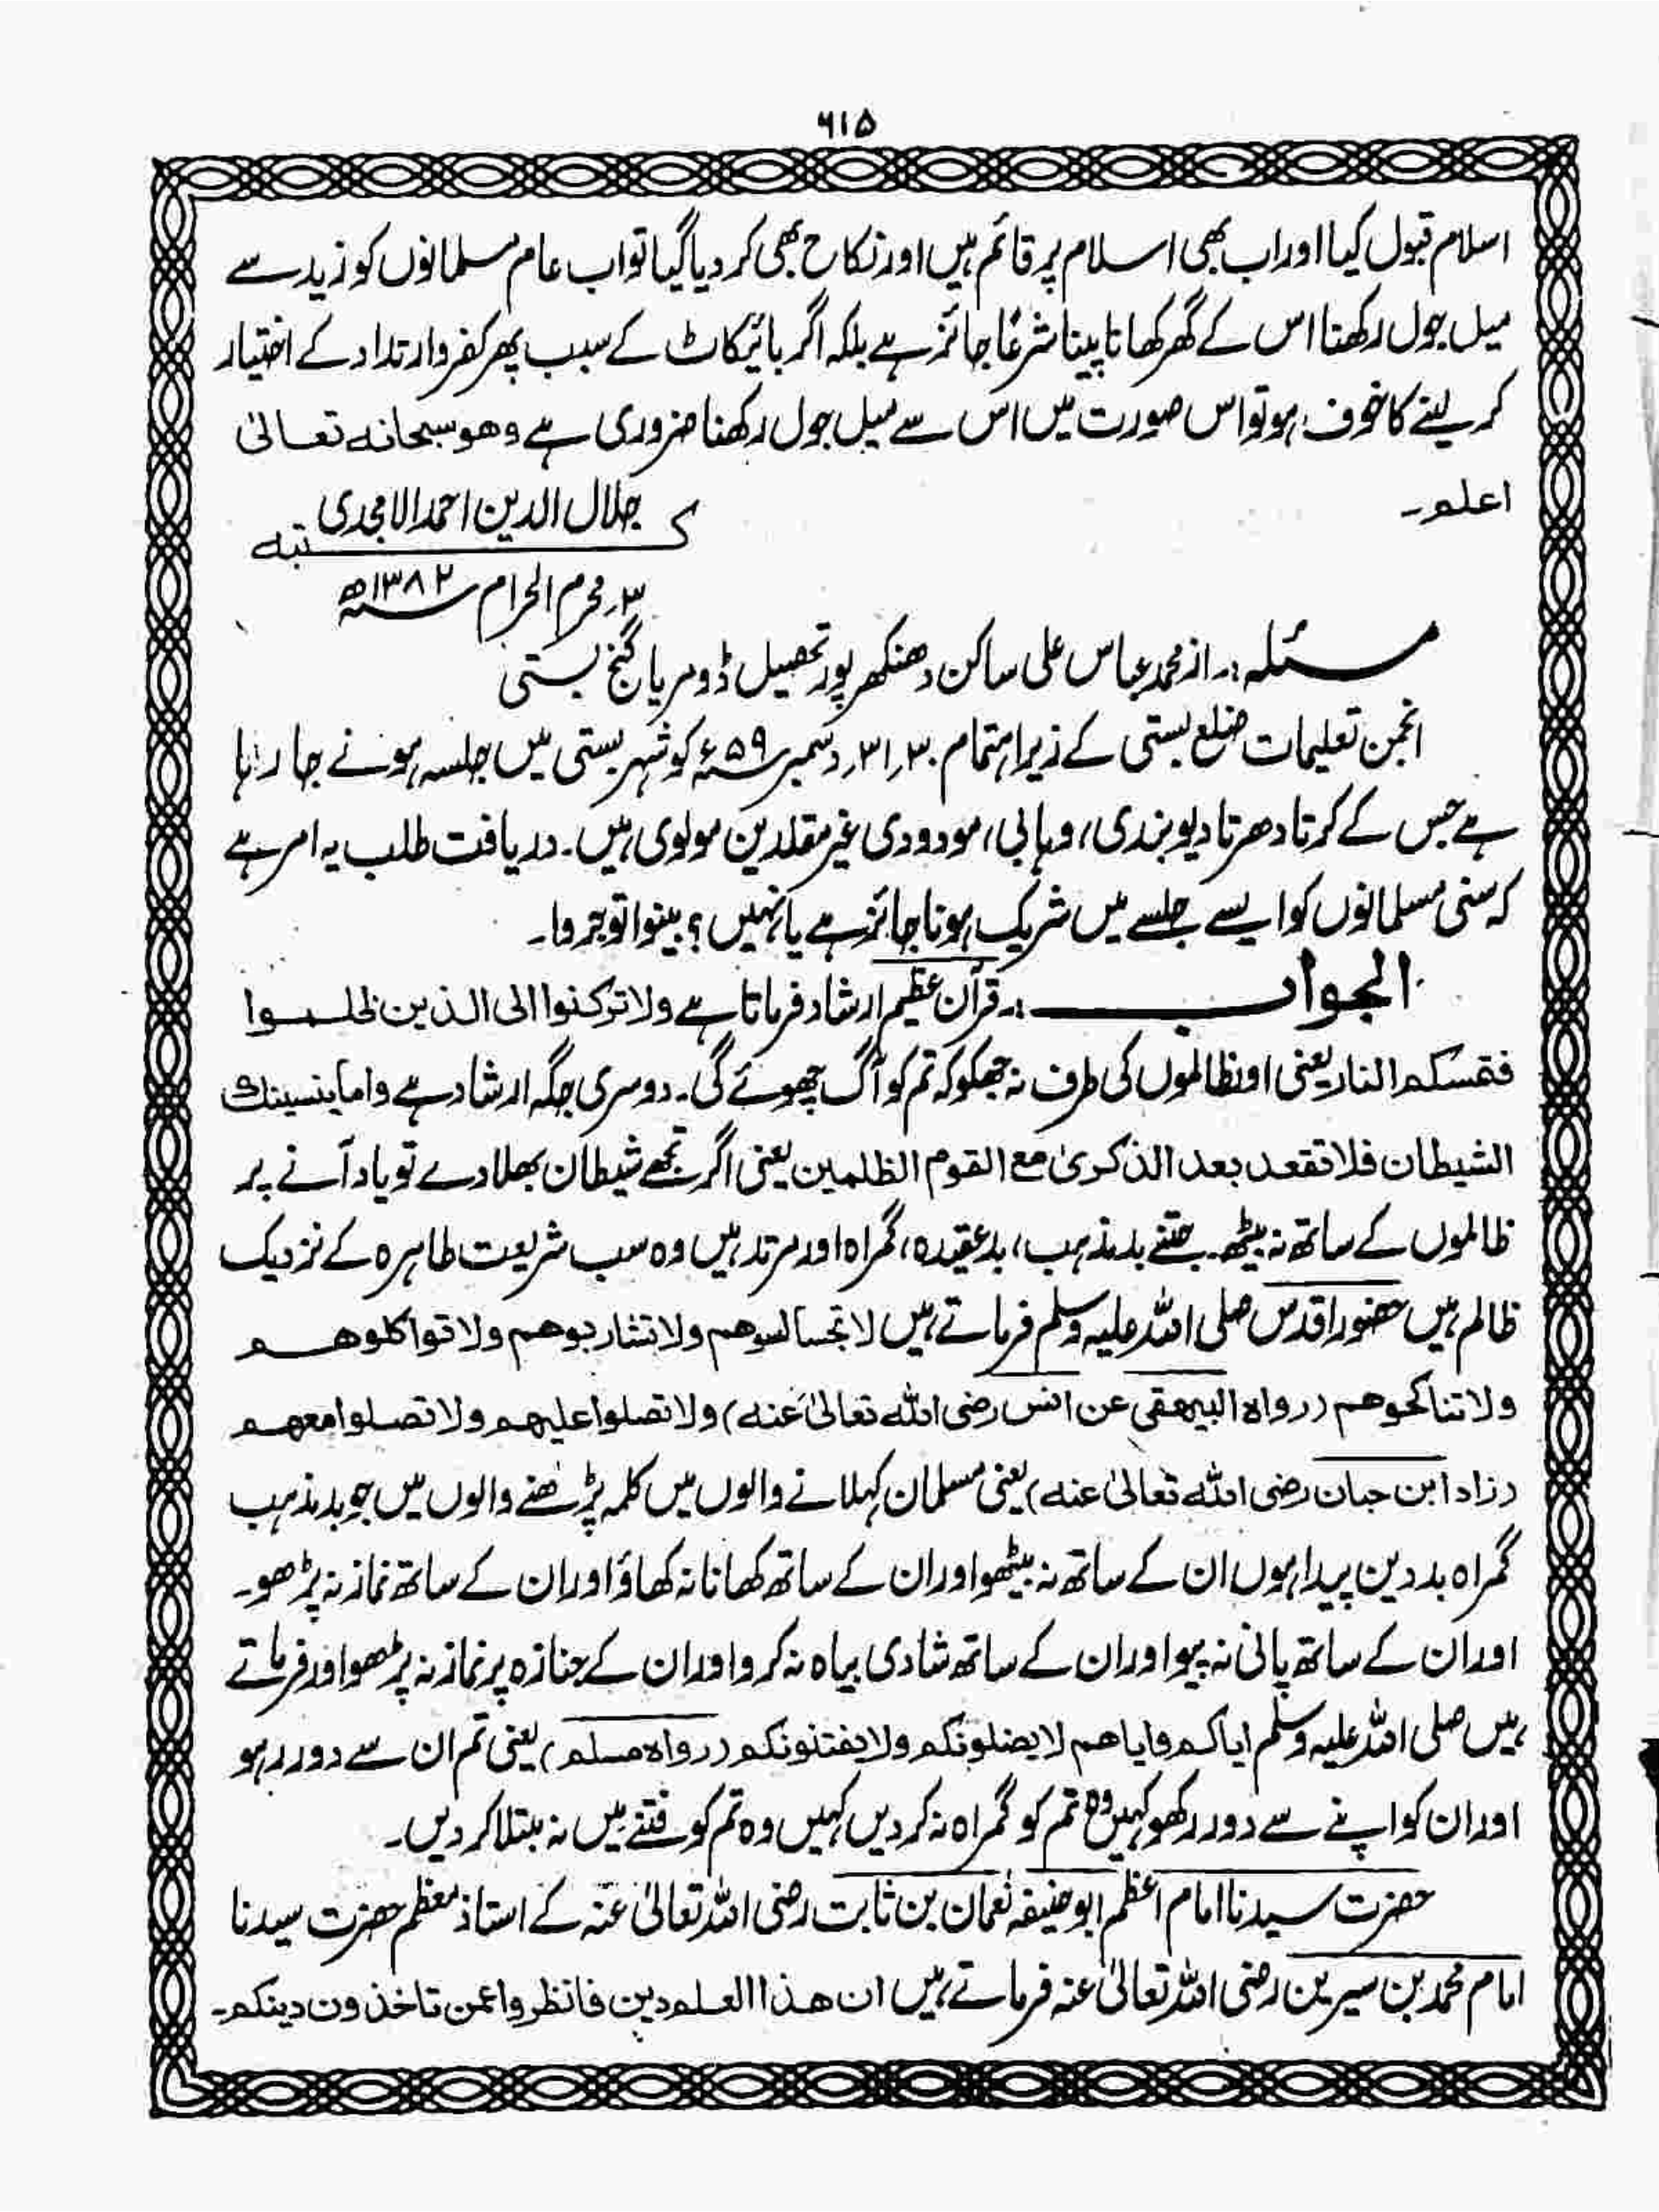 ۶۱۵
اسلام قبول کیا اور اب بھی اسلام پر قائم ہیں اور نکاح بھی کر دیا گیا تو اب عام مسلمانوں کو زید سے
میل جول رکھنا اس کے گھر کھانا پینا شرعًا جائز ہے بلکہ اگر بائیکاٹ کے سبب پھر کفر و ارتداد کے اختیار
کر لینے کا خوف ہو تو اس صورت میں اس سے میل جول رکھنا ضروری ہے وھو سبحانہ تعالیٰ
اعلم۔
جلال الدین احمد الامجدی
کتبہ
۳؍ محرم الحرام سنہ ۱۳۸۲ھ
مسئلہ:۔ از محمد عباس علی ساکن دھنکھر پور تحصیل ڈومریا گنج بستی
انجمن تعلیمات ضلع بستی کے زیر اہتمام ۳۰؍۳۱؍ دسمبر سنہ ۵۹ء کو شہر بستی میں جلسہ ہونے جا رہا
ہے جس کے کرتا دھرتا دیوبندی، وہابی، مودودی غیر مقلدین مولوی ہیں۔ دریافت طلب یہ امر ہے
کہ سنی مسلمانوں کو ایسے جلسے میں شریک ہونا جائز ہے یا نہیں؟ بینوا توجروا۔
الجواب:۔ قرآن عظیم ارشاد فرماتا ہے ولا ترکنوا الی الذین ظلموا
فتمسکم النار یعنی اور ظالموں کی طرف نہ جھکو کہ تم کو آگ چھوئے گی۔ دوسری جگہ ارشاد ہے واما ینسینک
الشیطان فلا تقعد بعد الذکریٰ مع القوم الظلمین یعنی اگر تجھے شیطان بھلا دے تو یاد آنے پر
ظالموں کے ساتھ نہ بیٹھ۔ جتنے بد مذہب، بد عقیدہ، گمراہ اور مرتد ہیں وہ سب شریعت طاہرہ کے نزدیک
ظالم ہیں حضور اقدس صلی اللہ علیہ وسلم فرماتے ہیں لا تجسالسوھم ولا تشاربوھم ولا تواکلوھم
ولا تناکحوھم (رواہ البیھقی عن انس رضی اللہ تعالیٰ عنہ) ولا تصلوا علیھم ولا تصلوا معھم
(زاد ابن حبان رضی اللہ تعالیٰ عنہ) یعنی مسلمان کہلانے والوں میں کلمہ پڑھنے والوں میں جو بد مذہب
گمراہ بد دین پیدا ہوں ان کے ساتھ نہ بیٹھو اور ان کے ساتھ کھانا نہ کھاؤ اور ان کے ساتھ نماز نہ پڑھو۔
اور ان کے ساتھ پانی نہ پیو اور ان کے ساتھ شادی بیاہ نہ کرو اور ان کے جنازہ پر نماز نہ پڑھو اور فرماتے
ہیں صلی اللہ علیہ وسلم ایاکم وایاھم لا یضلونکم ولا یفتنونکم (رواہ مسلم) یعنی تم ان سے دور رہو
اور ان کو اپنے سے دور رکھو کہیں وہ تم کو گمراہ نہ کر دیں کہیں وہ تم کو فتنے میں نہ مبتلا کر دیں۔
حضرت سیدنا امام اعظم ابو حنیفہ نعمان بن ثابت رضی اللہ تعالیٰ عنہ کے استاذ معظم حضرت سیدنا
امام محمد بن سیرین رضی اللہ تعالیٰ عنہ فرماتے ہیں ان ھذا العلم دین فانظروا عمن تاخذون دینکم۔